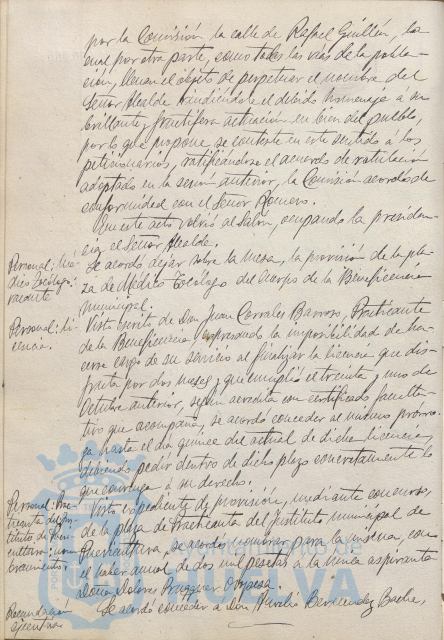 por la Comisión la calle de Rafael Guillén, la
cual por otra parte, como todas las vías de la pobla-
ción, llevan el objeto de perpetuar el nombre del
Señor Alcalde rindiéndole el debido homenaje a su
brillante y fructífera actuación en bien del pueblo,
por lo que propone se conteste en este sentido á los
peticionarios, ratificándose el acuerdo de rotulación
adoptado en la sesión anterior, la Comisión acordó de
conformidad con el Señor Romero.
En este acto volvió al Salón, ocupando la presiden-
cia, el Señor Alcalde.
Personal: Mé-
dico Tocólogo:
vacante
Se acordó dejar sobre la mesa, la provisión de la pla-
za de Médico Tocólogo del Cuerpo de la Beneficencia
Municipal.
Personal: Li-
cencia.
Visto escrito de Don Juan Corrales Barroso, Practicante
de la Beneficencia expresando la imposibilidad de ha-
cerse cargo de su servicio al finalizar la licencia que dis-
fruta por dos meses y que cumplió el treinta y uno de
Octubre anterior, según acredita con certificado faculta-
tivo que acompaña, se acordó conceder al mismo prórro-
ga hasta el día quince del actual de dicha licencia,
debiendo pedir dentro de dicho plazo concretamente lo
que convenga a su derecho.
Personal:
del Ins-
tituto de Pueri-
cultura: nom-
bramiento.
Visto expediente de provisión, mediante concurso,
de la plaza de del Instituto municipal de
Puericultura, se acordó nombrar para la misma, con
el haber anual de dos mil pesetas a la única aspirante
Doña Dolores Oropesa.
Recaudación
ejecutiva
Se acordó conceder a Don Aurelio Bermúdez
Ayuntamiento de
HUELVA